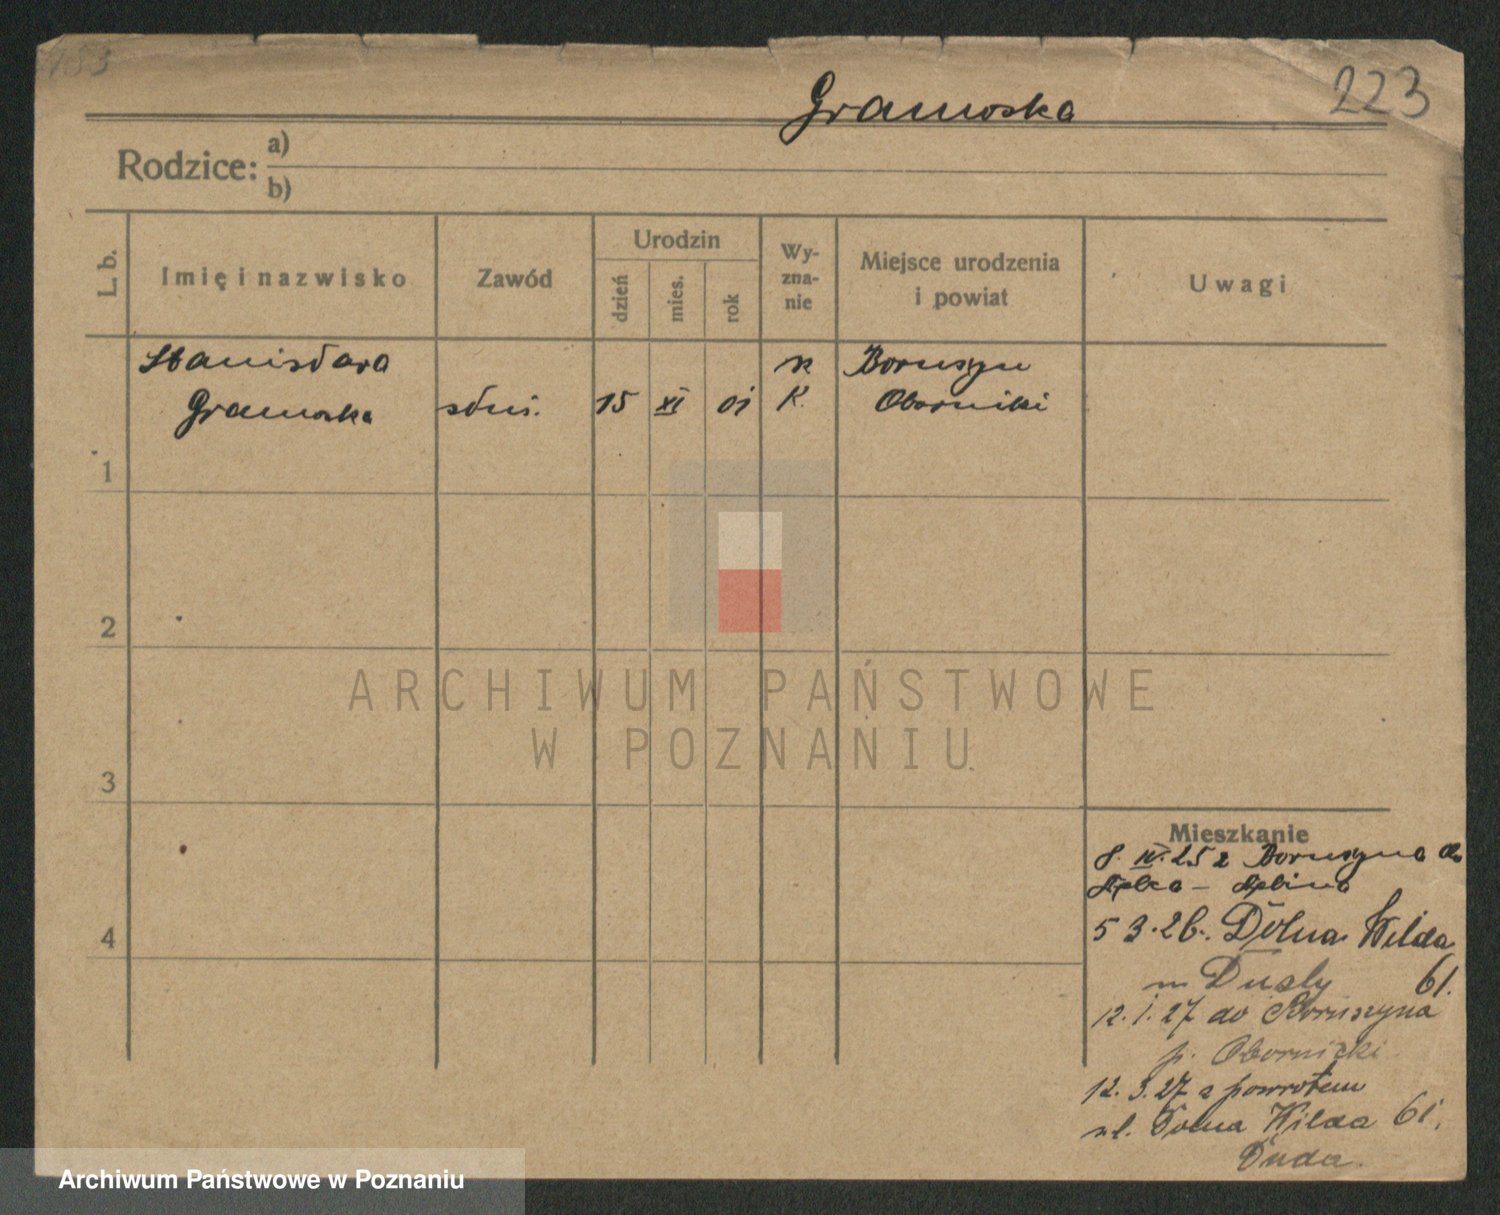 153
223
Gramoska
Rodzice: a)
b)
L. b.
Imię i nazwisko
Zawód
Urodzin
dzień
mies.
rok
Wy-
zna-
nie
Miejsce urodzenia
i powiat
Uwagi
Stanisława
Gramoska służ. 15 XI 01 rz. K. Boruszyn
Oborniki
1
2
3
4
ARCHIWUM PAŃSTWOWE
W POZNANIU
Mieszkanie
25 z Boruszyna
5 3.26. Dolna Wilda
61.
12.1.27 do Boruszyna
p. Obornicki
12.3.27 z powrotem
ul. Dolna Wilda 61.
Duda.
Archiwum Państwowe w Poznaniu